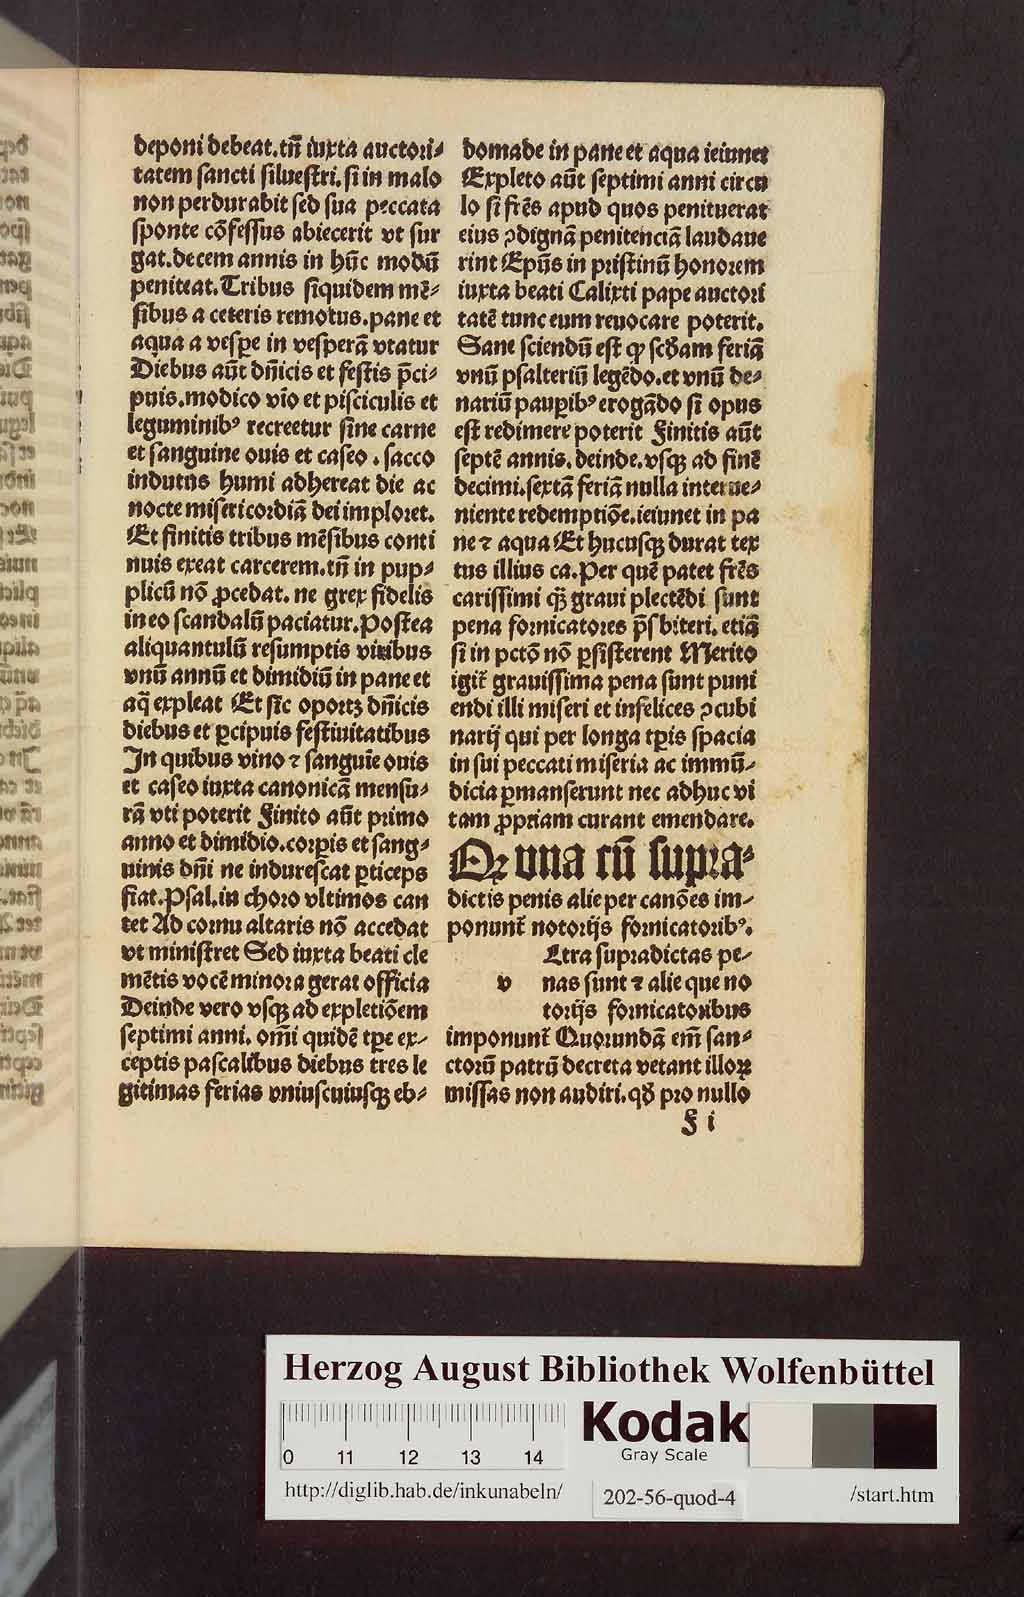 deponi debeat. tn̄ iuxta auctori⸗
tatem sancti siluestri. si in malo
non perdurabit sed sua peccata
sponte cōfessus abiecerit vt sur
gat. decem annis in hūc modū
peniteat. Tribus siquidem mē⸗
sibus a ceteris remotus. pane et
aqua a vespe in vesperā vtatur
Diebus aūt dn̄icis et festis p̄ci⸗
puis. modico vīo et pisciculis et
leguminibꝰ recreetur sine carne
et sanguine ouis et caseo. sacco
indutus humi adhereat die ac
nocte misericordiā dei imploret.
Et finitis tribus mēsibus conti
nuis exeat carcerem. tn̄ in pup⸗
plicū nō ꝓcedat. ne grex fidelis
in eo scandalū paciatur. Postea
aliquantulū resumptis viribus
vnū annū et dimidiū in pane et
aq̄ expleat Et sic oportꝫ dn̄icis
diebus et p̱cipuis festiuitatibus
In quibus vino ⁊ sanguīe ouis
et caseo iuxta canonicā mensu⸗
rā vti poterit Finito aūt primo
anno et dimidio. corꝑis et sang⸗
uinis dn̄i ne indurescat ꝑticeps
fiat. Psal. in choro vltimos can
tet Ad cornu altaris nō accedat
vt ministret Sed iuxta beati cle
mētis vocē minora gerat officia
Deinde vero vsqꝫ ad expletiōem
septimi anni. om̄i quidē tꝑe ex⸗
ceptis pascalibus diebus tres le
gitimas ferias vniuscuiusqꝫ eb⸗
domade in pane et aqua ieiunet
Expleto aūt septimi anni circu
lo si frēs apud quos penituerat
eius ꝯdignā penitenciā laudaue
rint Ep̄us in pristinū honorem
iuxta beati Calixti pape auctori
tatē tunc eum reuocare poterit.
Sane sciendū est ꝙ scđam feriā
vnū psalteriū legēdo. et vnū de⸗
nariū pauꝑibꝰ erogādo si opus
est redimere poterit Finitis aūt
septē annis. deinde. vsqꝫ ad finē
decimi. sextā feriā nulla interue⸗
niente redemptiōe. ieiunet in pa
ne ⁊ aqua Et hucusqꝫ durat tex
tus illius ca. Per quē patet frēs
carissimi qꝫ graui plectēdi sunt
pena fornicatores p̄sbiteri. etiā
si in pctō nō ꝑsisterent Merito
igit̄ grauissima pena sunt puni
endi illi miseri et infelices ꝯcubi
narij qui per longa tꝑis spacia
in sui peccati miseria ac immū⸗
dicia ꝑmanserunt nec adhuc vi
tam ꝓpriam curant emendare.
Qꝫ vna cū supra⸗
dictis penis alie per canōes im⸗
ponunt̄ notorijs fornicatoribꝰ.
v Ltra supradictas pe⸗
nas sunt ⁊ alie que no
torijs fornicatoribus
imponunt̄ Quorundā em̄ san⸗
ctorū patrū decreta vetant illoꝝ
missas non audiri. qđ pro nullo
F i
Herzog August Bibliothek Wolfenbüttel
0 11 12 13 14
Kodak
Gray Scale
http://diglib.hab.de/inkunabeln/
202-56-quod-4
/start.htm